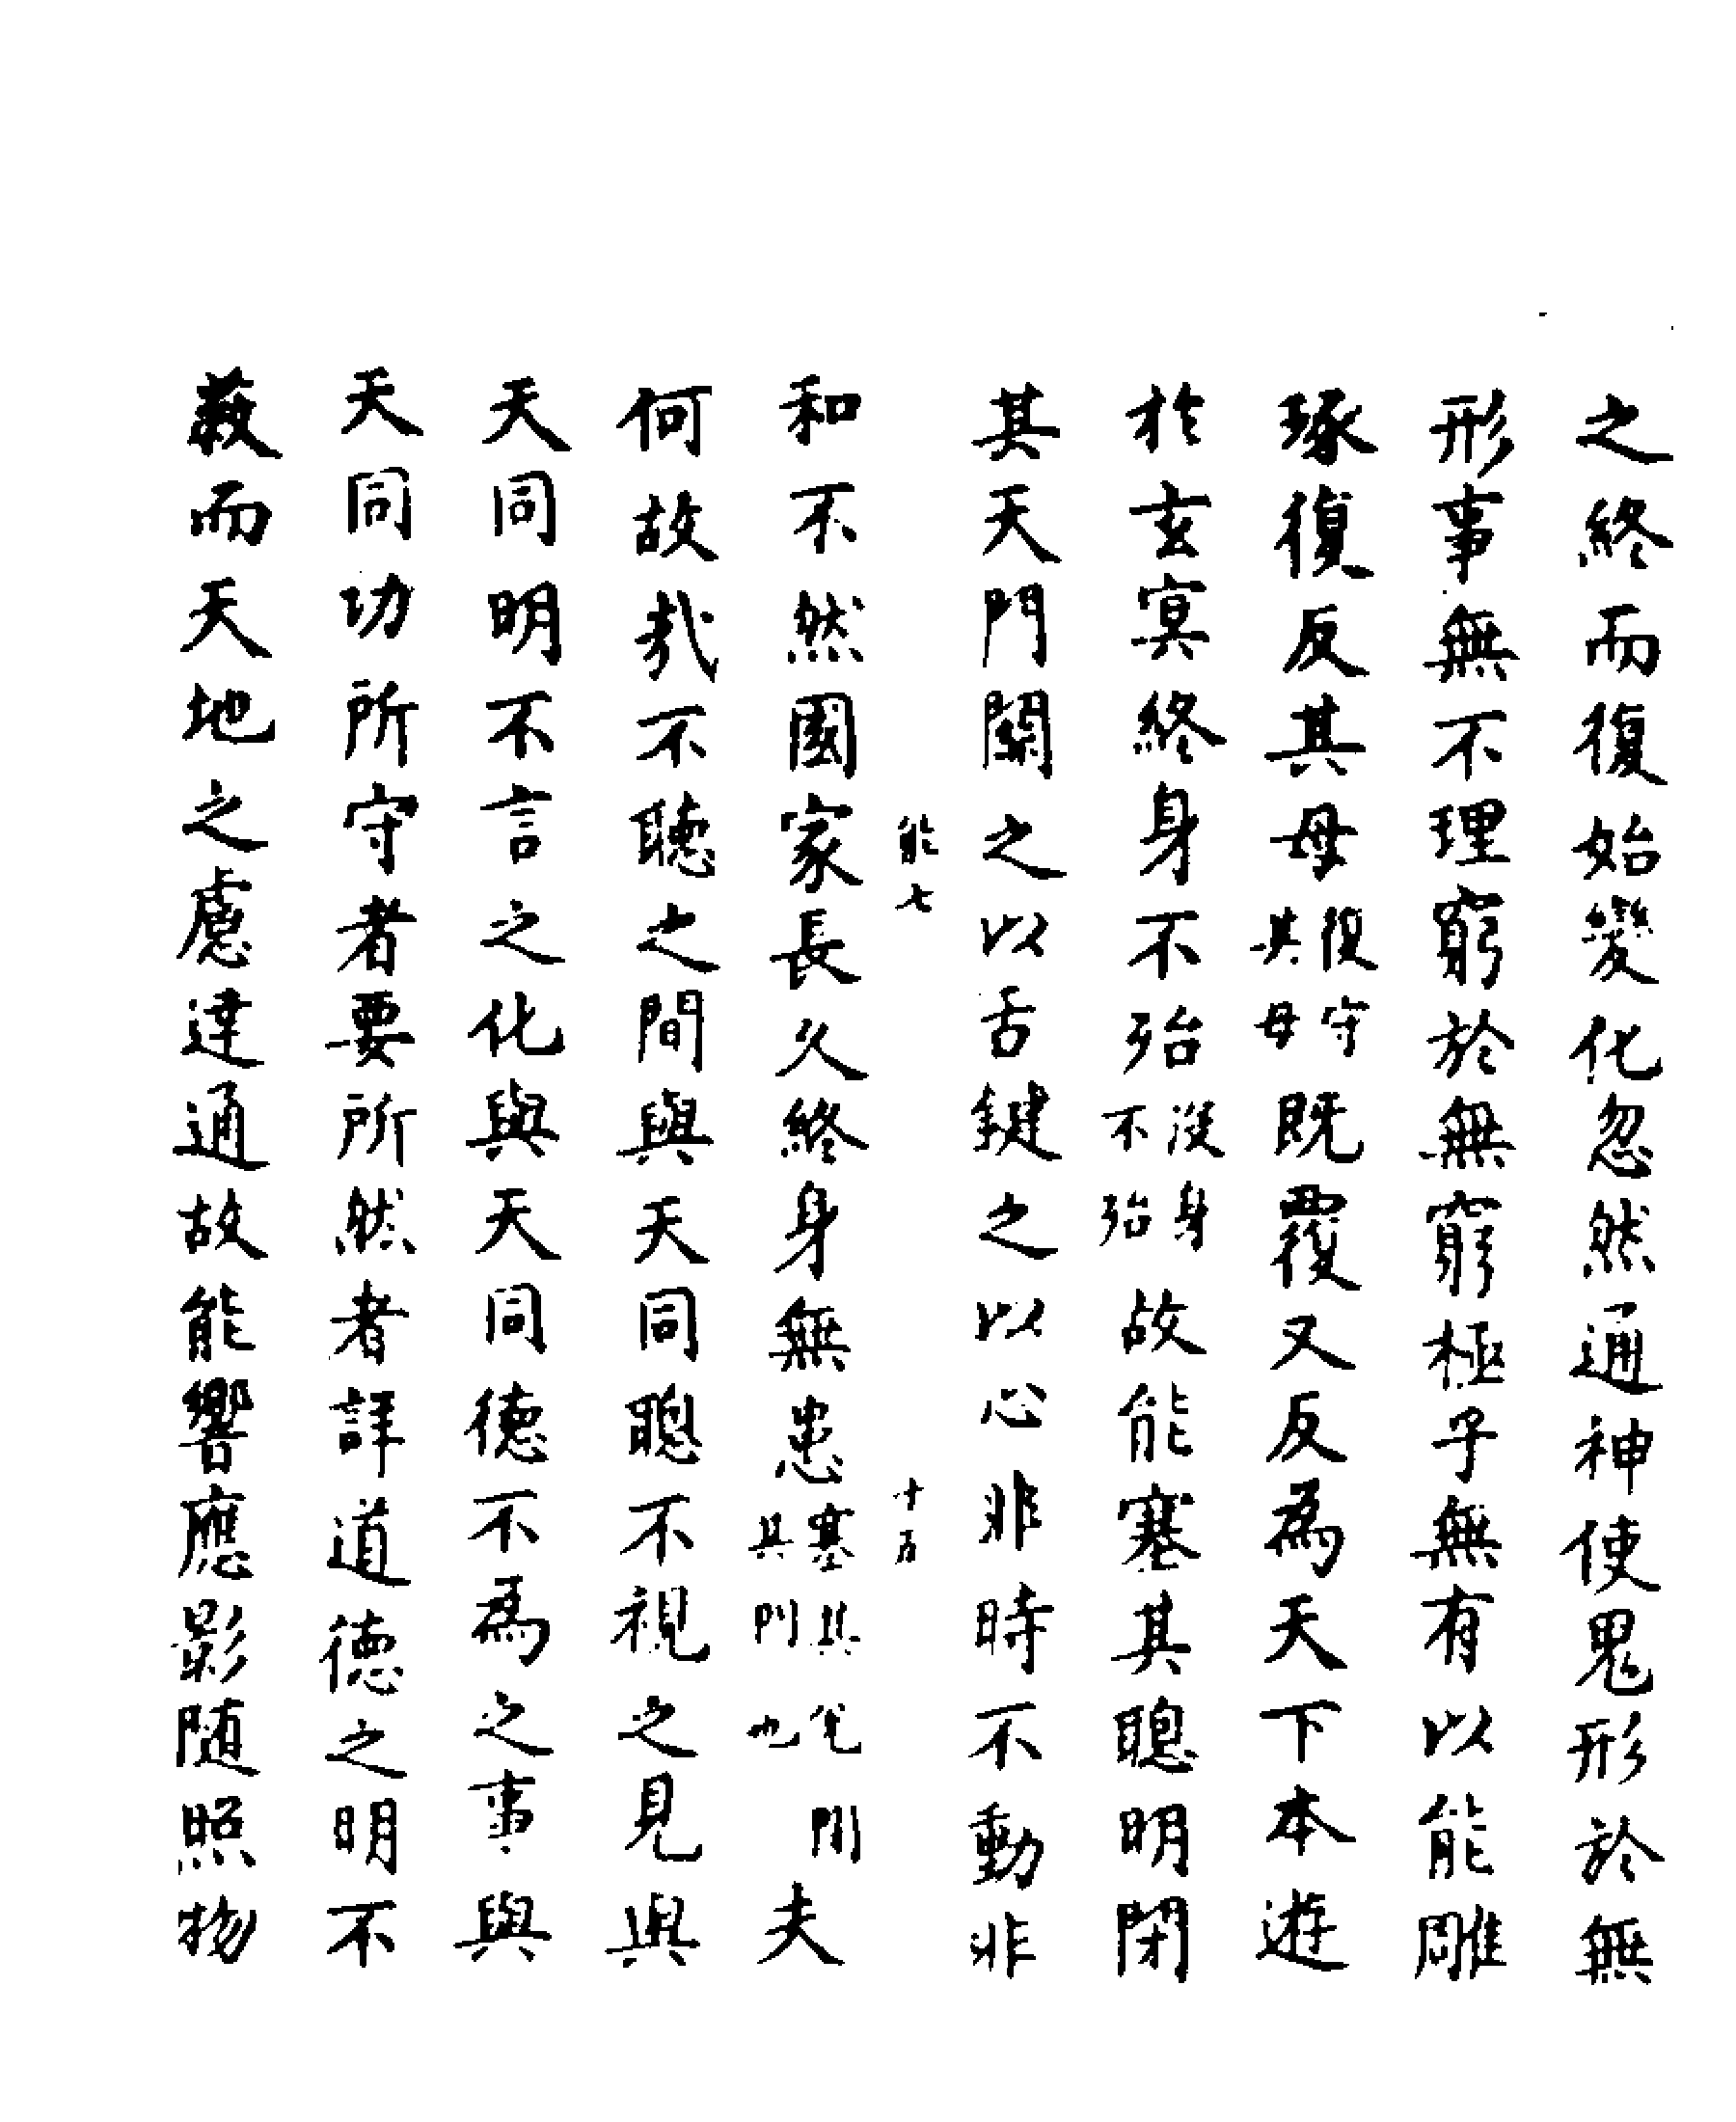 之終而復始變化忽然通神使鬼形於無
形事無不理窮於無窮極乎無有以能雕
琢復反其母復守其母既覆又反為天下本遊
於玄冥終身不殆沒身不殆故能塞其聰明閉
其天門關之以舌鍵之以心非時不動非
能七 十五
和不然國家長久終身無患塞其兌閉其門也夫
何故哉不聽之聞與天同聰不視之見與
天同明不言之化與天同德不為之事與
天同功所守者要所然者詳道德之明不
蔽而天地之慮達通故能響應影隨照物